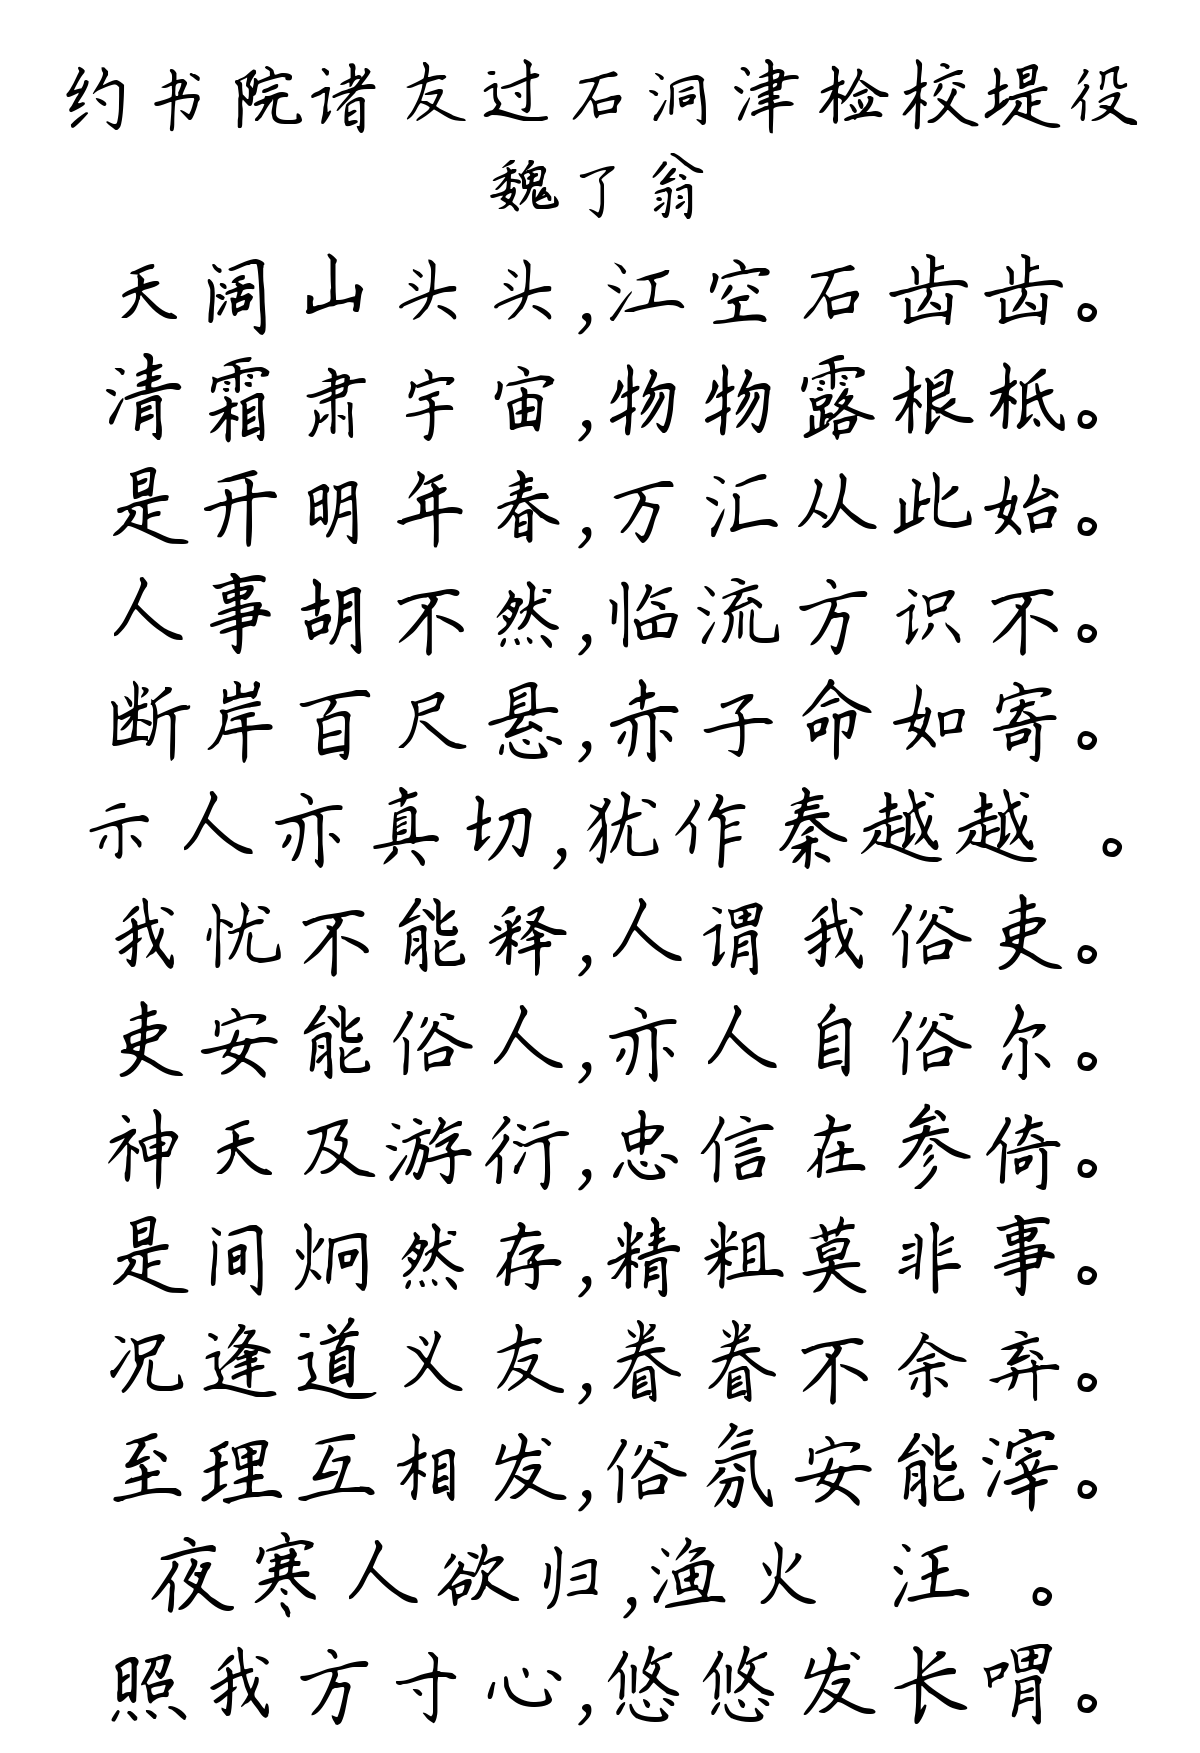 约书院诸友过石洞津检校堤役
魏了翁
天阔山头头,江空石齿齿。
清霜肃宇宙,物物露根柢。
是开明年春,万汇从此始。
人事胡不然,临流方识不。
断岸百尺悬,赤子命如寄。
示人亦真切,犹作秦越越 。
我忧不能释,人谓我俗吏。
吏安能俗人,亦人自俗尔。
神天及游衍,忠信在参倚。
是间炯然存,精粗莫非事。
况逢道义友,眷眷不余弃。
至理互相发,俗氛安能滓。
夜寒人欲归,渔火 汪 。
照我方寸心,悠悠发长喟。